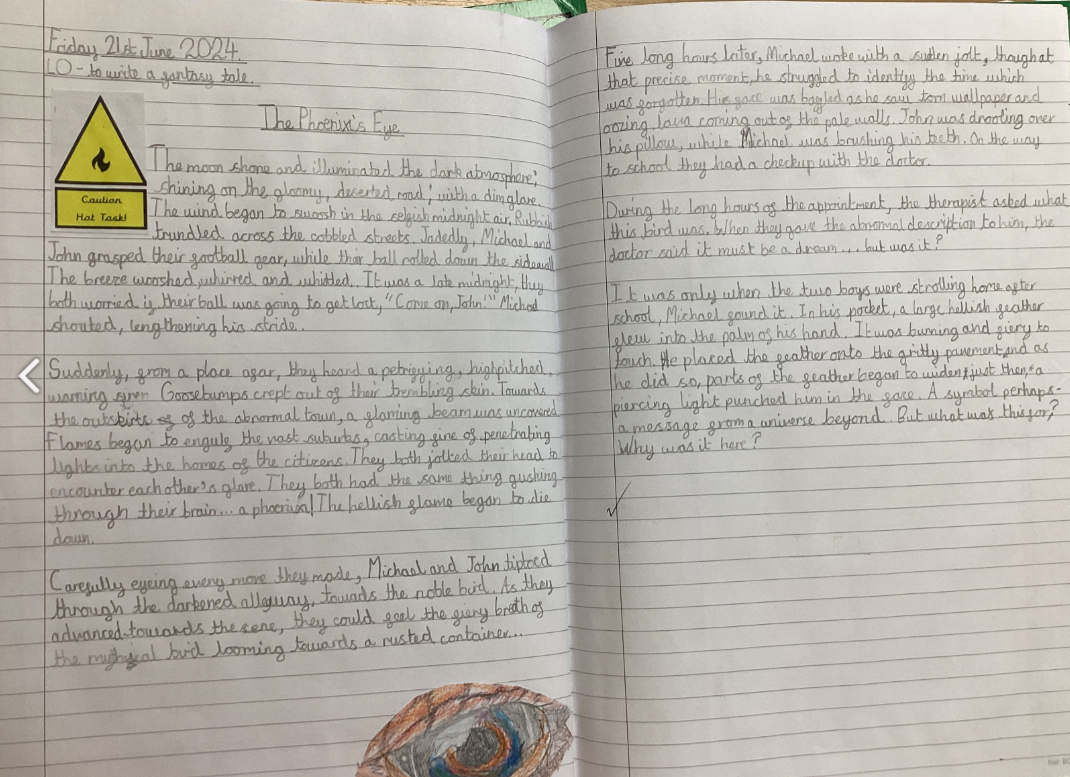 Friday 21st June 2024.
LO - to write a fantasy tale.
Caution
Hot Task!
The Phoenix's Eye
The moon shone and illuminated the dark atmosphere;
shining on the gloomy, deserted road; with a dim glare.
The wind began to swoosh in the selfish midnight air. Rubbish
trundled across the cobbled streets. Jadedly, Michael and
John grasped their football gear, while their ball rolled down the sidewall
The breeze wooshed, whirred and whistled. It was a late midnight, they
both worried if their ball was going to get lost, "Come on, John!" Michael
shouted, lengthening his stride.
Suddenly, from a place afar, they heard a petrifying, highpitched,
warning siren Goosebumps crept out of their trembling skin. Towards
the outskirts of the abnormal town, a flaming beam was uncovered
Flames began to engulf the vast suburbs, casting fine of penetrating
lights into the homes of the citizens. They both jolted their head to
encounter each other's glare. They both had the same thing gushing
through their brain... a phoenix! The hellish flame began to die
down.
Carefully eyeing every move they made, Michael and John tiptoed
through the darkened alleyway, towards the noble bird. As they
advanced towards the scene, they could feel the fiery breath of
the mythical bird looming towards a rusted container...
Five long hours later, Michael woke with a sudden jolt, though at
that precise moment, he struggled to identify the time which
was forgotten. His face was baffled as he saw torn wallpaper and
oozing lava coming out of the pale walls. John was drooling over
his pillow, while Michael was brushing his teeth. On the way
to school they had a checkup with the doctor.
During the long hours of the appointment, the therapist asked what
this bird was. When they gave the abnormal description to him, the
doctor said it must be a dream... but was it?
It was only when the two boys were strolling home after
school, Michael found it. In his pocket, a large hellish feather
flew into the palm of his hand. It was burning and fiery to
touch. He placed the feather onto the gritty pavement and as
he did so, parts of the feather began to widen; just then, a
piercing light punched him in the face. A symbol perhaps-
a message from a universe beyond. But what was this for?
Why was it here?